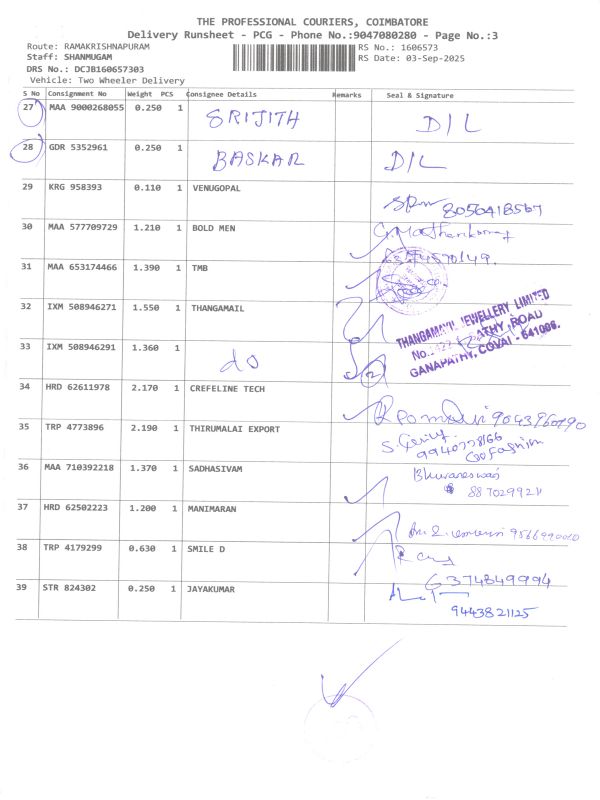 THE PROFESSIONAL COURIERS, COIMBATORE
Delivery Runsheet - PCG - Phone No.:9047080280 - Page No.:3
Route: RAMAKRISHNAPURAM
RS No.: 1606573
Staff: SHANMUGAM
RS Date: 03-Sep-2025
DRS No.: DCJB160657303
Vehicle: Two Wheeler Delivery
S No Consignment No Weight PCS Consignee Details Remarks Seal & Signature
27 MAA 9000268055 0.250 1 SRIJITH D/L
28 GDR 5352961 0.250 1 BASKAR D/L
29 KRG 958393 0.110 1 VENUGOPAL
8056418567
30 MAA 577709729 1.210 1 BOLD MEN
31 MAA 653174466 1.390 1 TMB
32 IXM 508946271 1.550 1 THANGAMAIL
THANGAMAYIL JEWELLERY LIMITED
ROAD
GANAPATHY, COVAI - 641006.
33 IXM 508946291 1.360 1 do 2
34 HRD 62611978 2.170 1 CREFELINE TECH
35 TRP 4773896 2.190 1 THIRUMALAI EXPORT
36 MAA 710392218 1.370 1 SADHASIVAM Bhuvaneswari
887029921
37 HRD 62502223 1.200 1 MANIMARAN
38 TRP 4179299 0.630 1 SMILE D
6374849994
39 STR 824302 0.250 1 JAYAKUMAR
9443821125